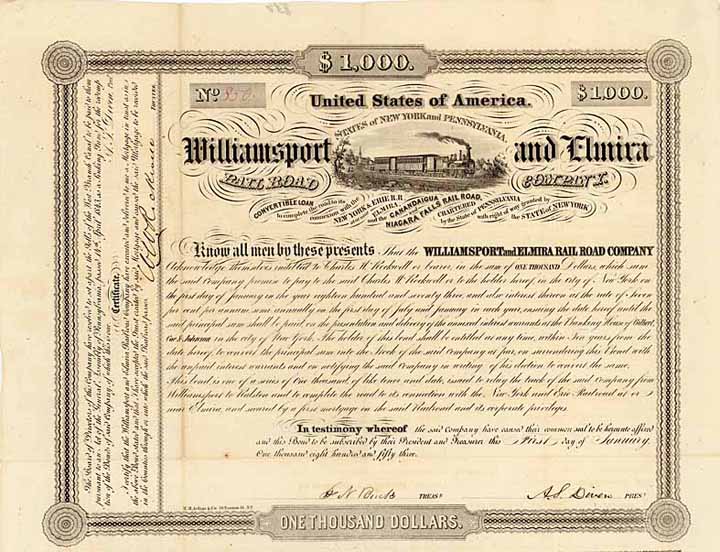 $1,000.
No 850.
$1,000.
United States of America.
STATES OF NEW YORK and PENNSYLVANIA.
Williamsport and Elmira
RAIL ROAD COMPANY.
CONVERTIBLE LOAN
to complete the road to its
connexion with the
NEW YORK & ERIE R.R.
ELMIRA,
and the CANANDAIGUA
NIAGARA FALLS RAIL ROAD,
CHARTERED
by the State of PENNSYLVANIA
with right of way granted by
the STATE OF NEW YORK.
Know all men by these presents That the WILLIAMSPORT and ELMIRA RAIL ROAD COMPANY
Acknowledge themselves indebted to Charles W Rockwell or bearer, in the sum of ONE THOUSAND Dollars, which sum
the said Company promise to pay to the said Charles W Rockwell or to the holder hereof, in the City of New York on
the first day of January in the year eighteen hundred and seventy three, and also interest thereon at the rate of seven
per cent per annum semi annually on the first day of July and January in each year, ensuing the date hereof until the
said principal sum shall be paid on the presentation and delivery of the annexed interest warrants at the Banking House of Gilbert,
Coe & Johnson in the city of New York. The holder of this bond shall be entitled at any time, within Ten years from the
date hereof to convert the principal sum into the Stock of the said Company at par, on surrendering this Bond with
the unpaid interest warrants and on notifying the said Company in writing of his election to convert the same.
This bond is one of a series of One thousand, of like tenor and date, issued to relay the track of the said Company from
Williamsport to Ralston and to complete the road to its connexion with the New York and Erie Railroad at or
near Elmira, and secured by a first mortgage on the said Railroad and its corporate privileges.
In testimony whereof the said Company have caused their common seal to be hereunto affixed
and this Bond to be subscribed by their President and Treasurer this First day of January
One thousand eight hundred and fifty three.
TREASr.
A.S. Diven PRESt.
ONE THOUSAND DOLLARS.
The Board of Directors of the Company have resolved to set apart the Tolls of the West Branch Canal to be paid to them
pursuant to an Act of the General Assembly of Pennsylvania, passed 14th April 1851, as a Sinking Fund for the redemp-
tion of the Bonds of said Company of which this is one.
Certificate.
I certify that the Williamsport and Elmira Railroad Company have executed and delivered to me a Mortgage in trust as in
the above Bond stated and that I have accepted the Trust created by said Mortgage and caused the said Mortgage to be recorded
in the counties through or into which the said Railroad passes.
TRUSTEE.